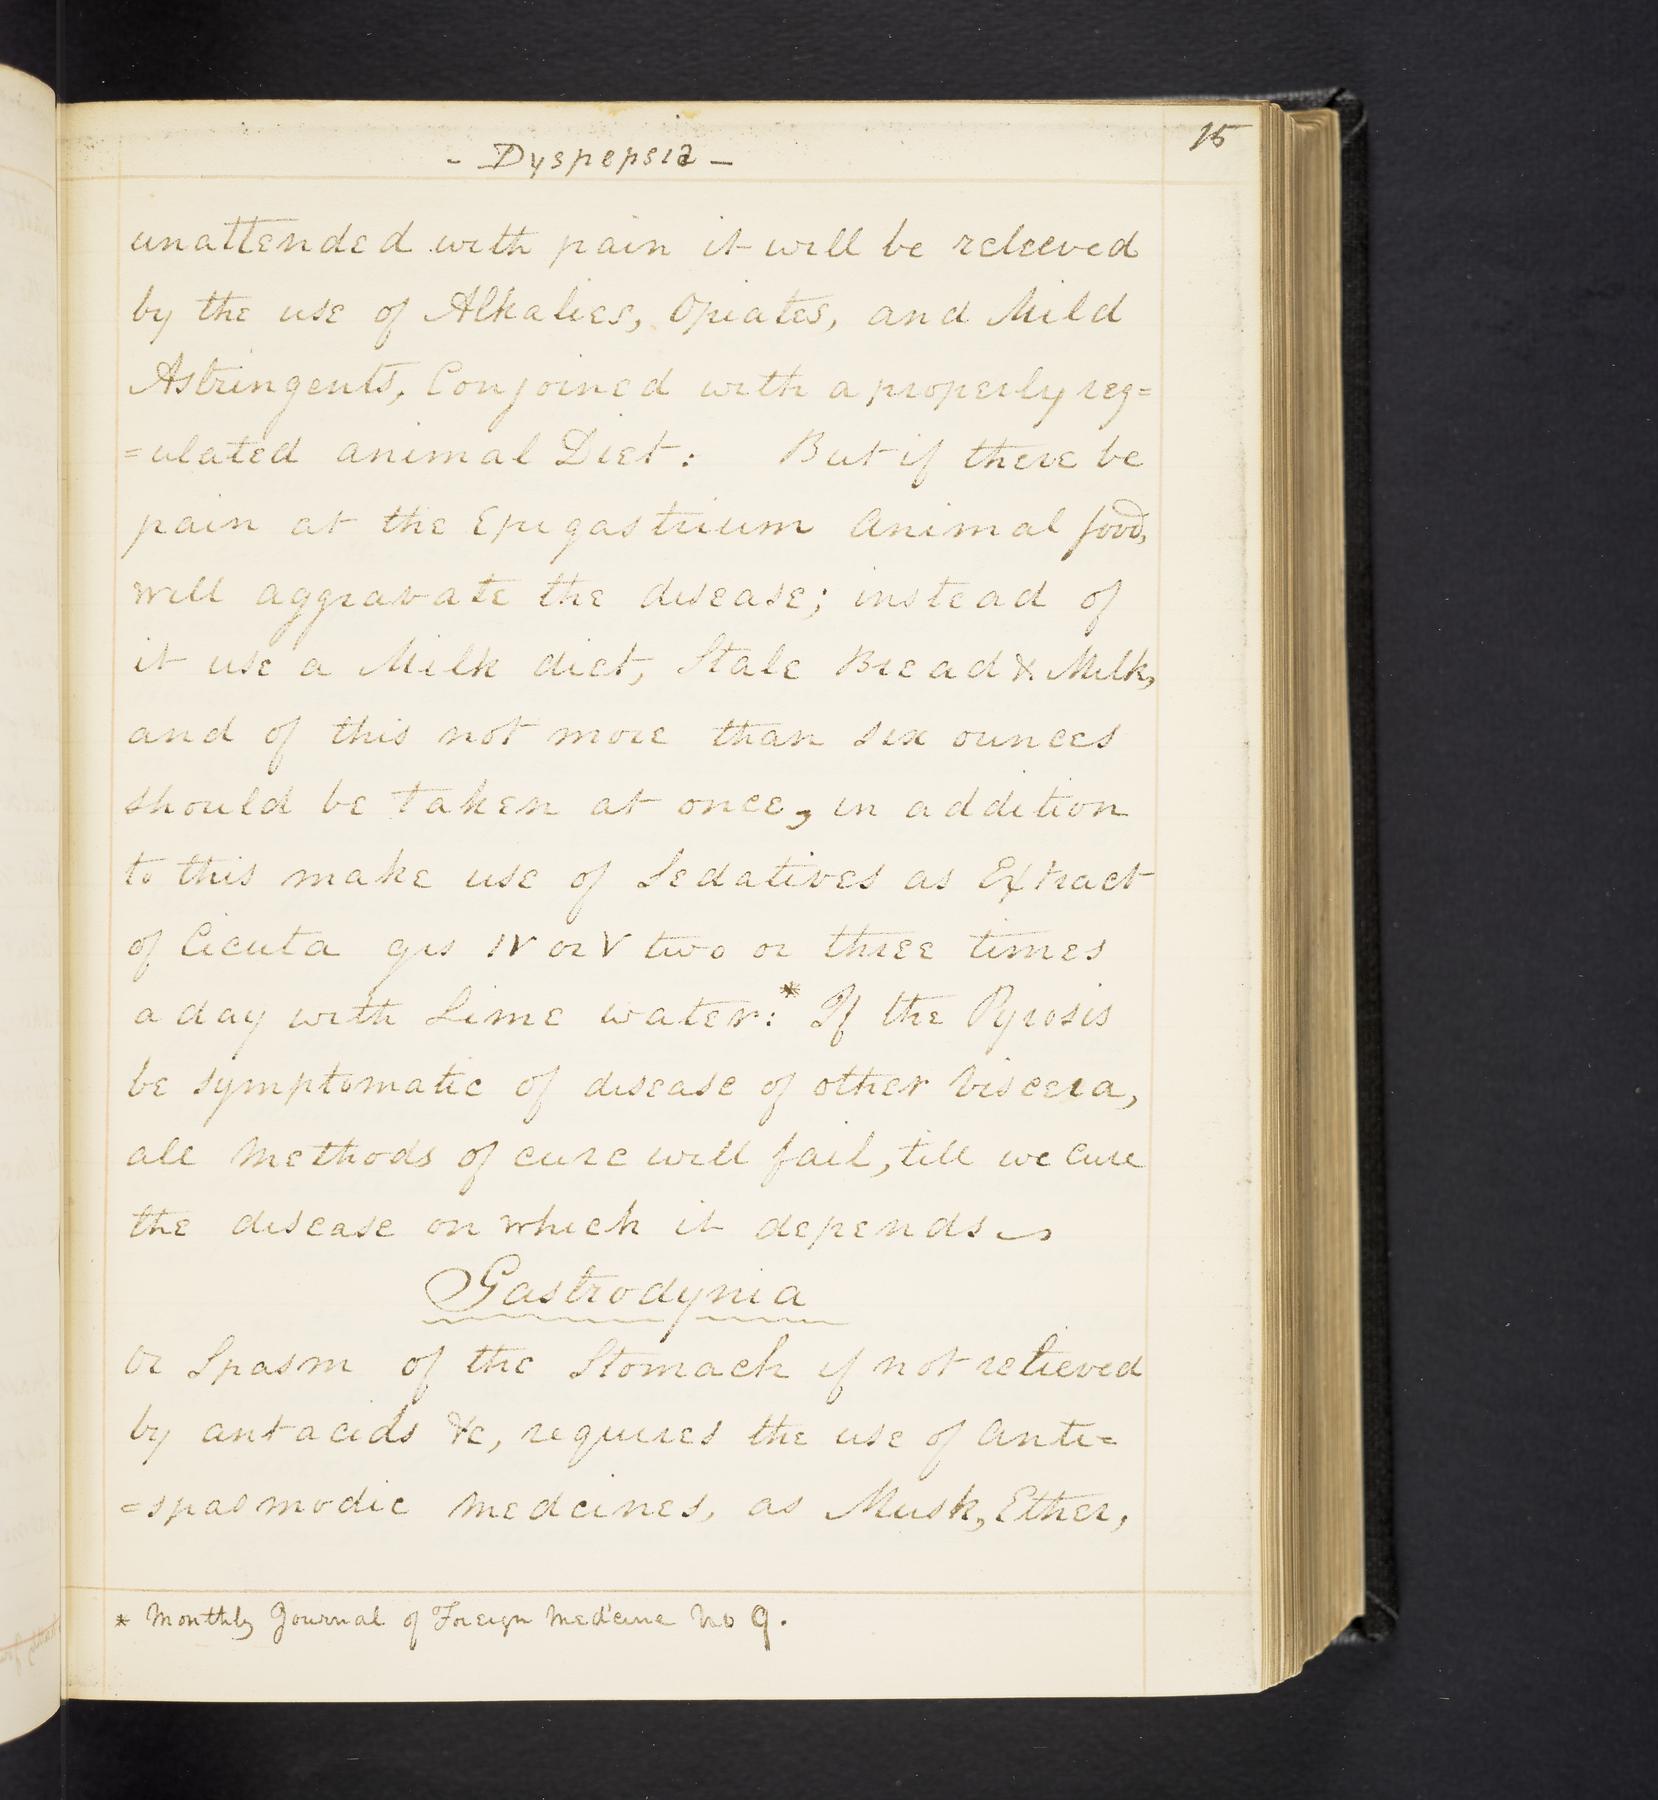 15
- Dyspepsia -
unattended with pain it will be releeved
by the use of Alkalies, Opiates, and Mild
Astringents, Conjoined with a properly reg=
=ulated animal Diet: But if there be
pain at the Epigastrium animal food,
will aggravate the disease; instead of
it use a Milk diet, Stale Bread & Milk,
and of this not more than six ounces
should be taken at once, in addition
to this make use of Sedatives as Extract
of Cicuta grs IV or V two or three times
a day with Lime water:* If the Pyrosis
be symptomatic of disease of other Viscera,
all Methods of cure will fail, till we Cure
the disease on which it depends
Gastrodynia
Or Spasm of the Stomach if not relieved
by antacids &c, requires the use of Anti=
=spasmodic Medcines, as Musk, Ether,
* Monthly Journal of Foreign Medicine No 9.